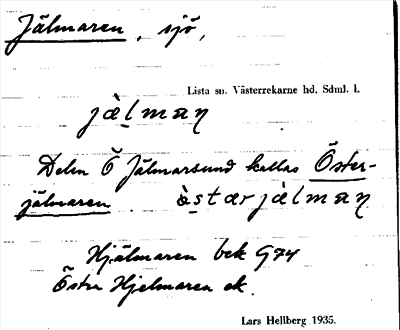 Jälmaren, sjö,
Lista sn. Västerrekarne hd. Sdml. l.
jàl̥maɳ
Delen Ö Jälmarsund kallas Öster-
jälmaren. ö̀stærjàlmaɳ
Hjälmaren bek G74
Östra Hjelmaren ek.
Lars Hellberg 1935.